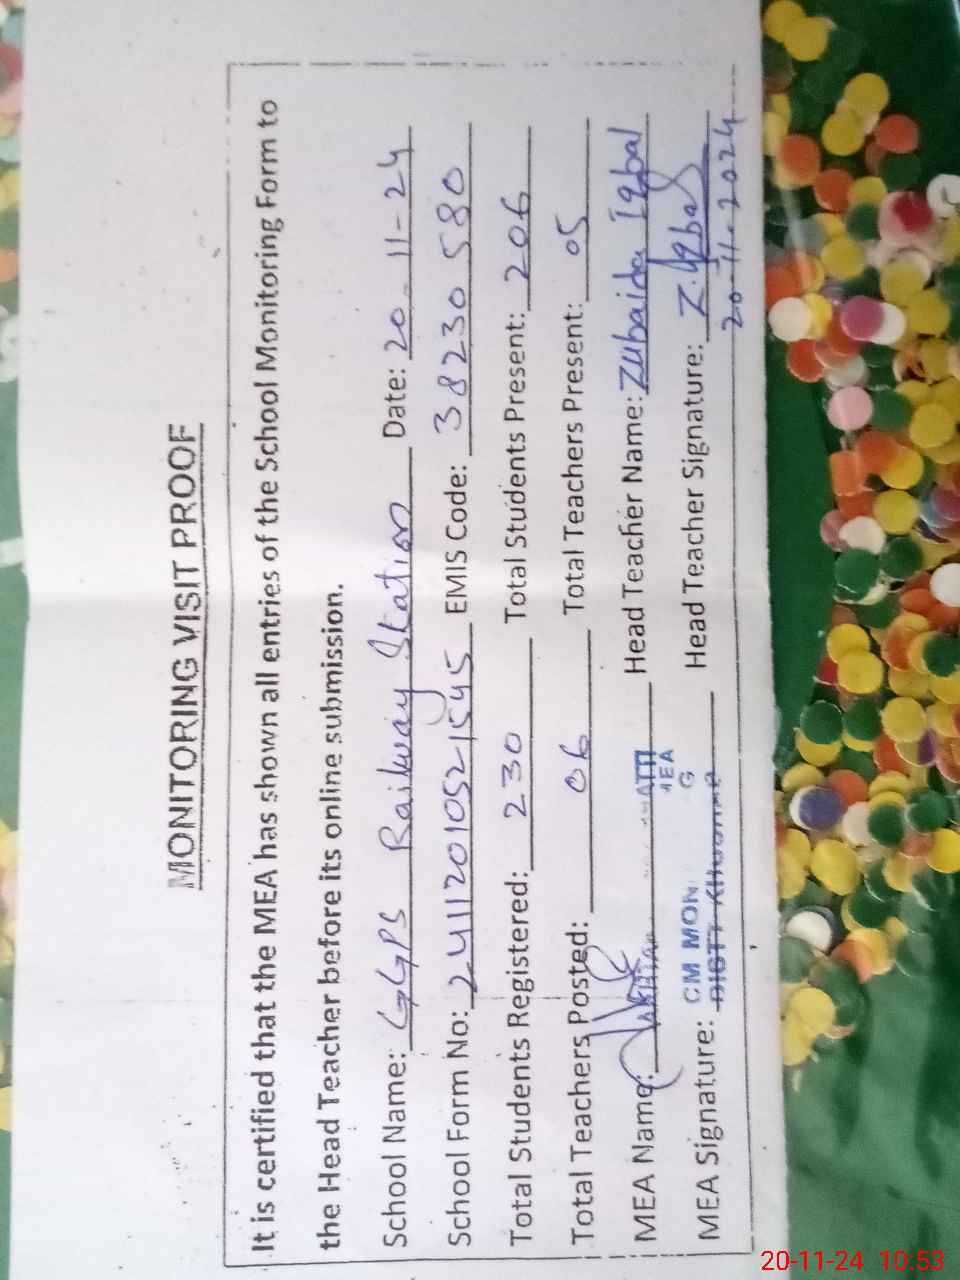 MONITORING VISIT PROOF
It is certified that the MEA has shown all entries of the School Monitoring Form to
the Head Teacher before its online submission.
School Name: GGPS Railway Station Date: 20-11-24
School Form No: 24112010521545 EMIS Code: 38230580
Total Students Registered: 230 Total Students Present: 206
Total Teachers Posted: 06 Total Teachers Present: 05
MEA Name: Head Teacher Name: Zubaida Iqbal
MEA Head Teacher Signature: Z.Iqbal
MEA Signature: CM MON. 20-11-2024
20-11-24 10:53